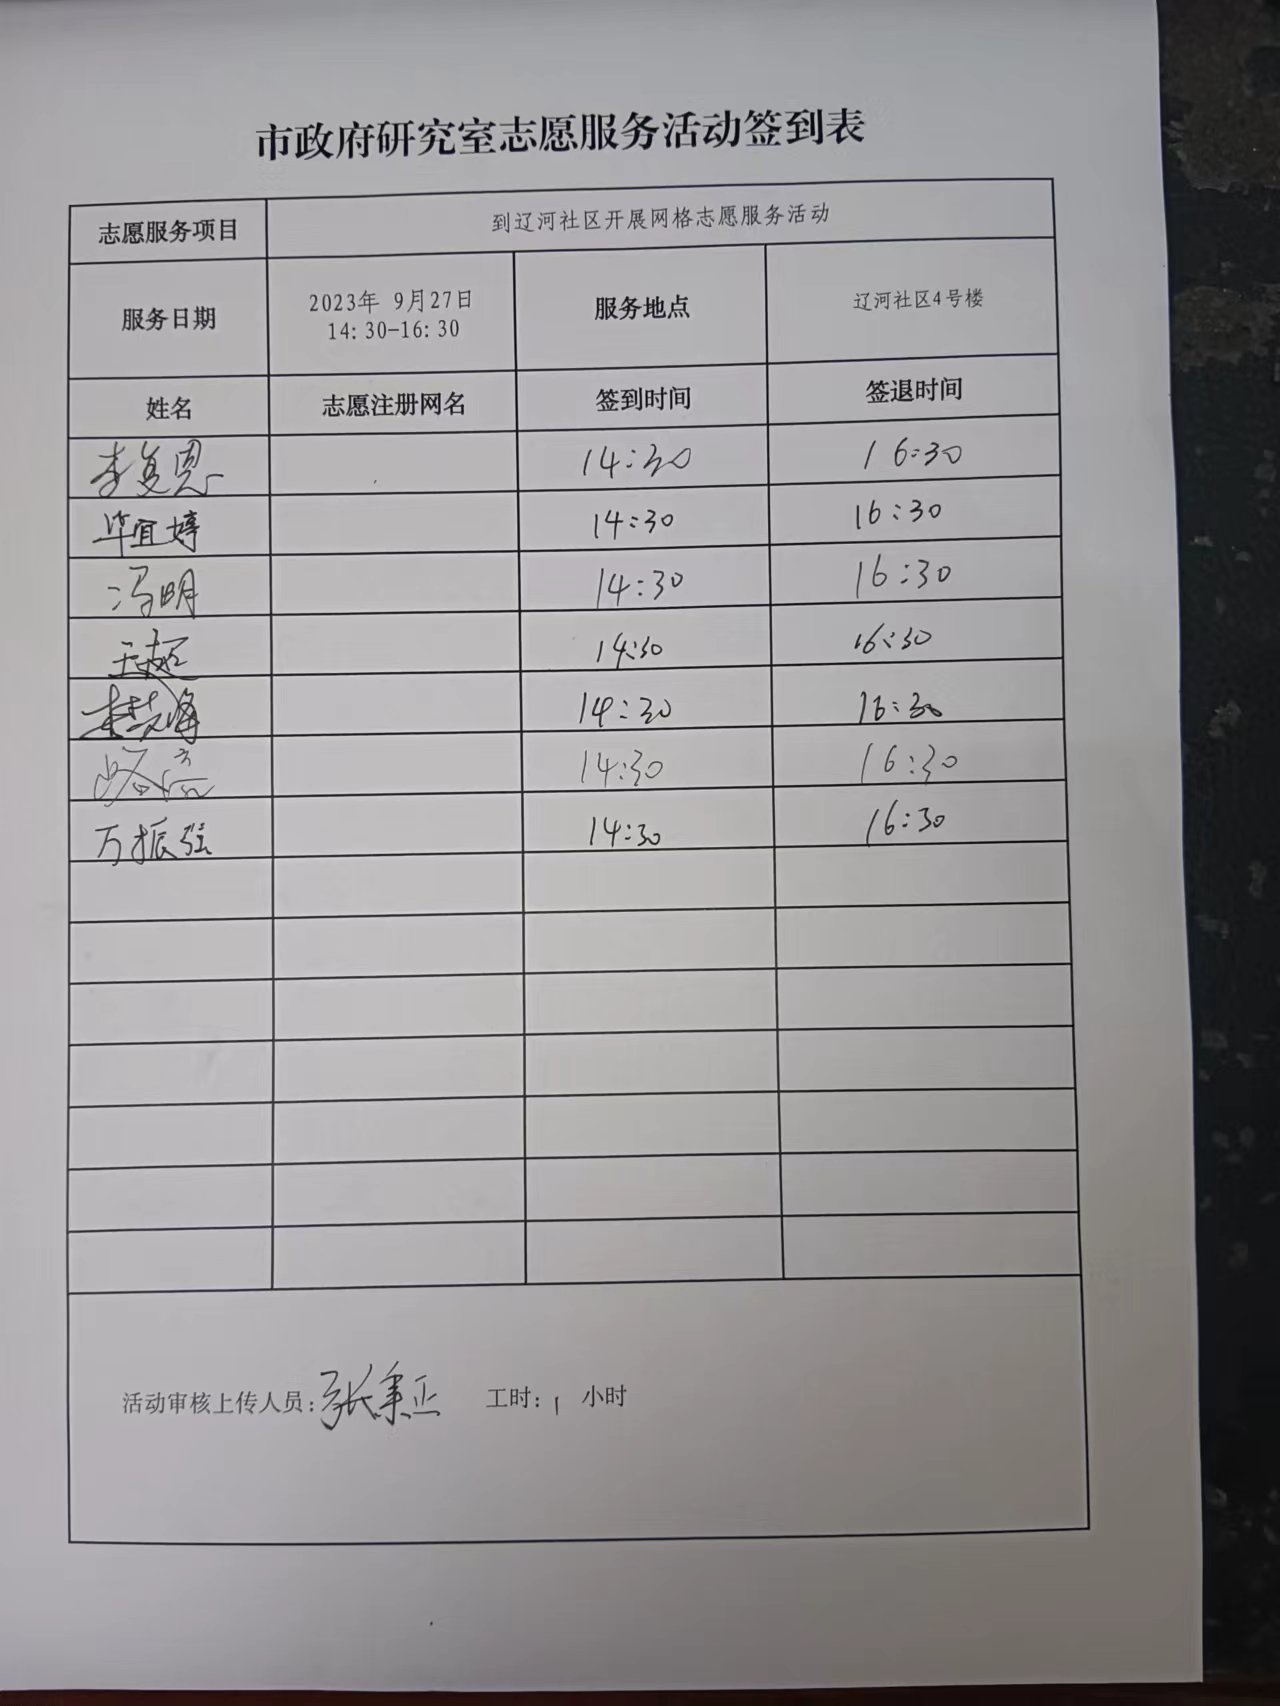 市政府研究室志愿服务活动签到表
志愿服务项目 到辽河社区开展网格志愿服务活动
服务日期 2023年 9月27日 14:30-16:30 服务地点 辽河社区4号楼
姓名 志愿注册网名 签到时间 签退时间
李复恩 14:30 16:30
毕宜婷 14:30 16:30
冯明 14:30 16:30
王超 14:30 16:30
14:30 16:30
14:30 16:30
万振强 14:30 16:30
活动审核上传人员:张秉正 工时: 1 小时